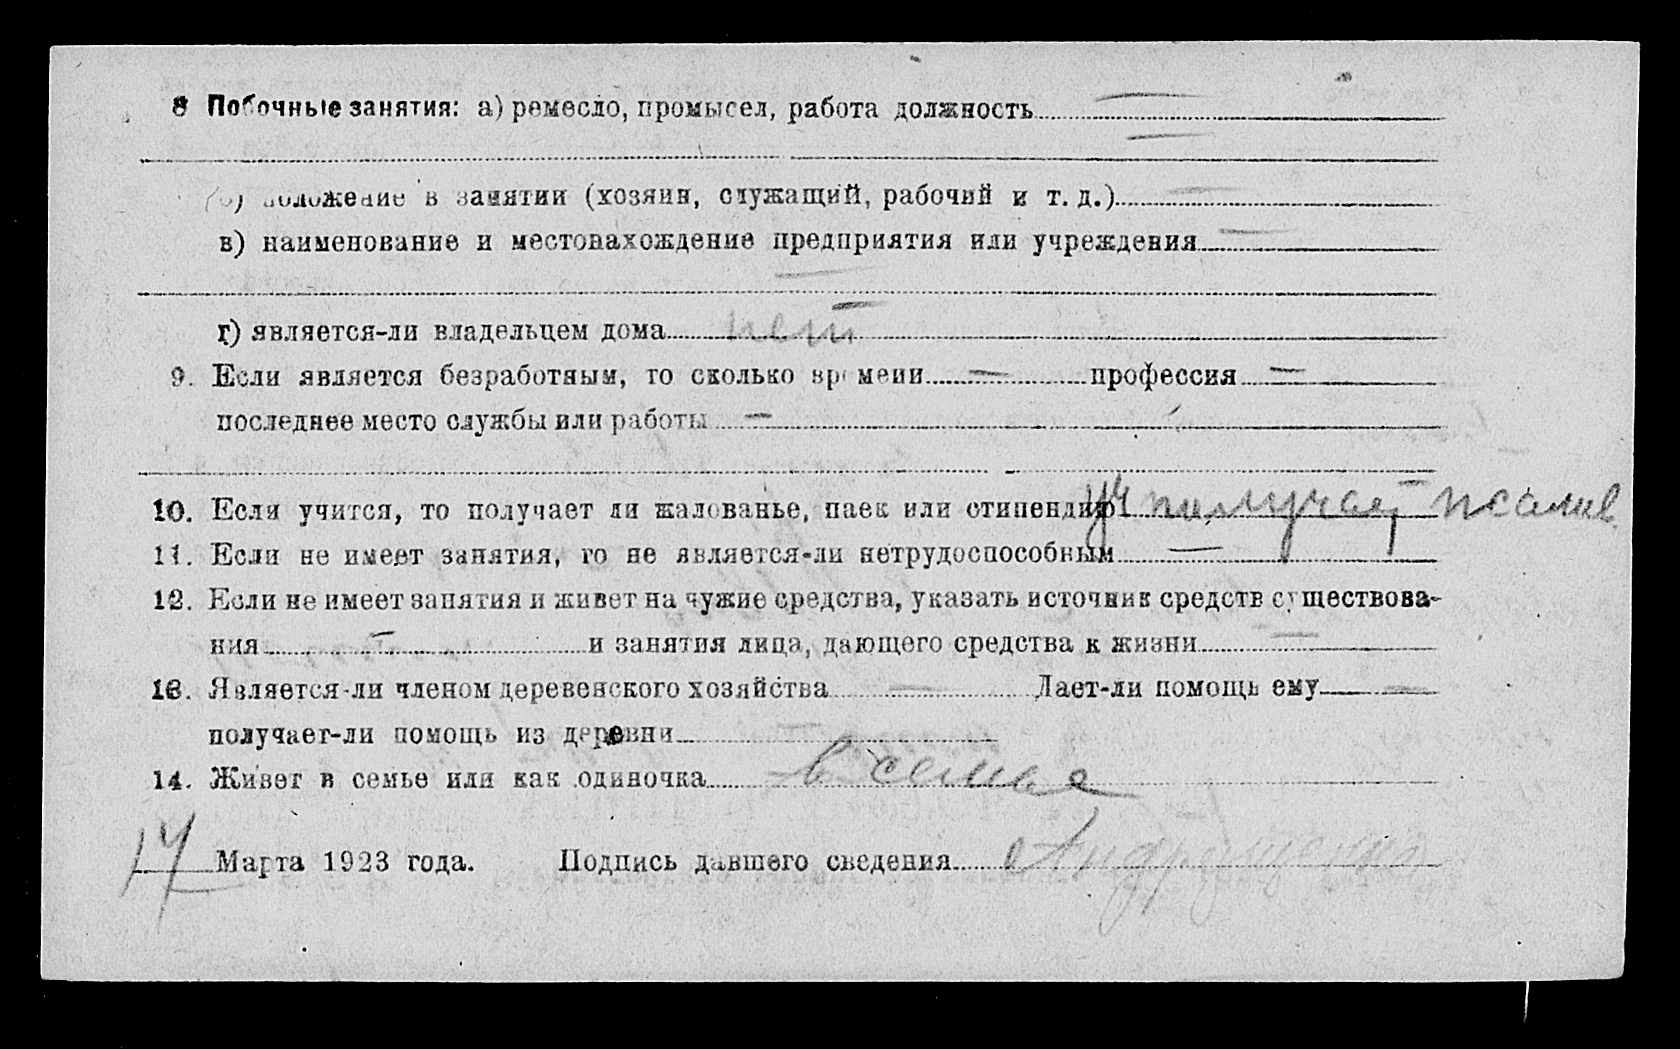 8 Побочные занятия: а) ремесло, промысел, работа должность —
—
б) положение в занятии (хозяин, служащий, рабочий и т. д.) —
в) наименование и местонахождение предприятия или учреждения —
—
г) является-ли владельцем дома нет
9. Если является безработным, то сколько времени — профессия —
последнее место службы или работы —
10. Если учится, то получает ли жалованье, паек или стипендию уч получает жалов
11. Если не имеет занятия, то не является-ли нетрудоспособным —
12. Если не имеет занятия и живет на чужие средства, указать источник средств существова-
ния — и занятия лица, дающего средства к жизни —
13. Является-ли членом деревенского хозяйства — Дает-ли помощь ему —
получает-ли помощь из деревни —
14. Живет в семье или как одиночка в семье
14 Марта 1923 года. Подпись давшего сведения Андрущенко